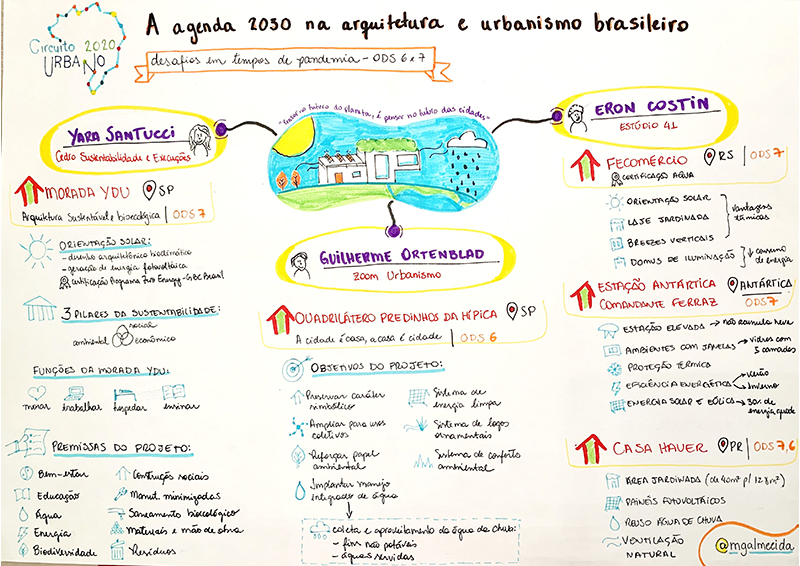 Circuito 2020
URBANO
A agenda 2030 na arquitetura e urbanismo brasileiro
desafios em tempos de pandemia - ODS 6 e 7
"Pensar no futuro do planeta, é pensar no futuro das cidades"
YARA SANTUCCI
Cedro Sustentabilidade e Execuções
MORADA YDU
SP
Arquitetura Sustentável e bioecológica | ODS 7
ORIENTAÇÃO SOLAR:
- desenho arquitetônico bioclimático
- geração de energia fotovoltaica
Certificação Programa Zero Energy - GBC Brasil
3 PILARES DA SUSTENTABILIDADE:
social
ambiental
econômico
FUNÇÕES DA MORADA YDU:
morar
trabalhar
hospedar
ensinar
PREMISSAS DO PROJETO:
Bem-estar
Educação
Água
Energia
Biodiversidade
Construções sociais
Manut. minimizadas
Saneamento bioecológico
Materiais e mão de obra
Resíduos
GUILHERME ORTENBLAD
Zoom Urbanismo
QUADRILÁTERO PREDINHOS DA HÍPICA
SP
A cidade é casa, a casa é cidade | ODS 6
OBJETIVOS DO PROJETO:
Preservar caráter
simbólico
Ampliar para usos
coletivos
Reforçar papel
ambiental
Implantar manejo
integrado de água
Sistema de
energia limpa
Sistema de lagos
ornamentais
Sistema de conforto
ambiental
coleta e aproveitamento da água da chuva:
- fins não potáveis
- águas servidas
ERON COSTIN
ESTÚDIO 41
FECOMÉRCIO
RS | ODS 7
CERTIFICAÇÃO AQUA
ORIENTAÇÃO SOLAR
LAJE JARDINADA
BREEZES VERTICAIS
vantagens
térmicas
DOMUS DE ILUMINAÇÃO
↓ consumo
de energia
ESTAÇÃO ANTÁRTICA
COMANDANTE FERRAZ
ANTÁRTICA
ODS 7
ESTAÇÃO ELEVADA → não acumula neve
AMBIENTES COM JANELAS → vidros com
3 camadas
PROTEÇÃO TÉRMICA
EFICIÊNCIA ENERGÉTICA
verão
inverno
ENERGIA SOLAR E EÓLICA → 30% de
energia gasta
CASA HAUER
PR | ODS 7,6
ÁREA JARDINADA (de 40m² p/ 128m²)
PAINÉIS FOTOVOLTAICOS
REUSO ÁGUA DE CHUVA
VENTILAÇÃO
NATURAL
@mgalmecida